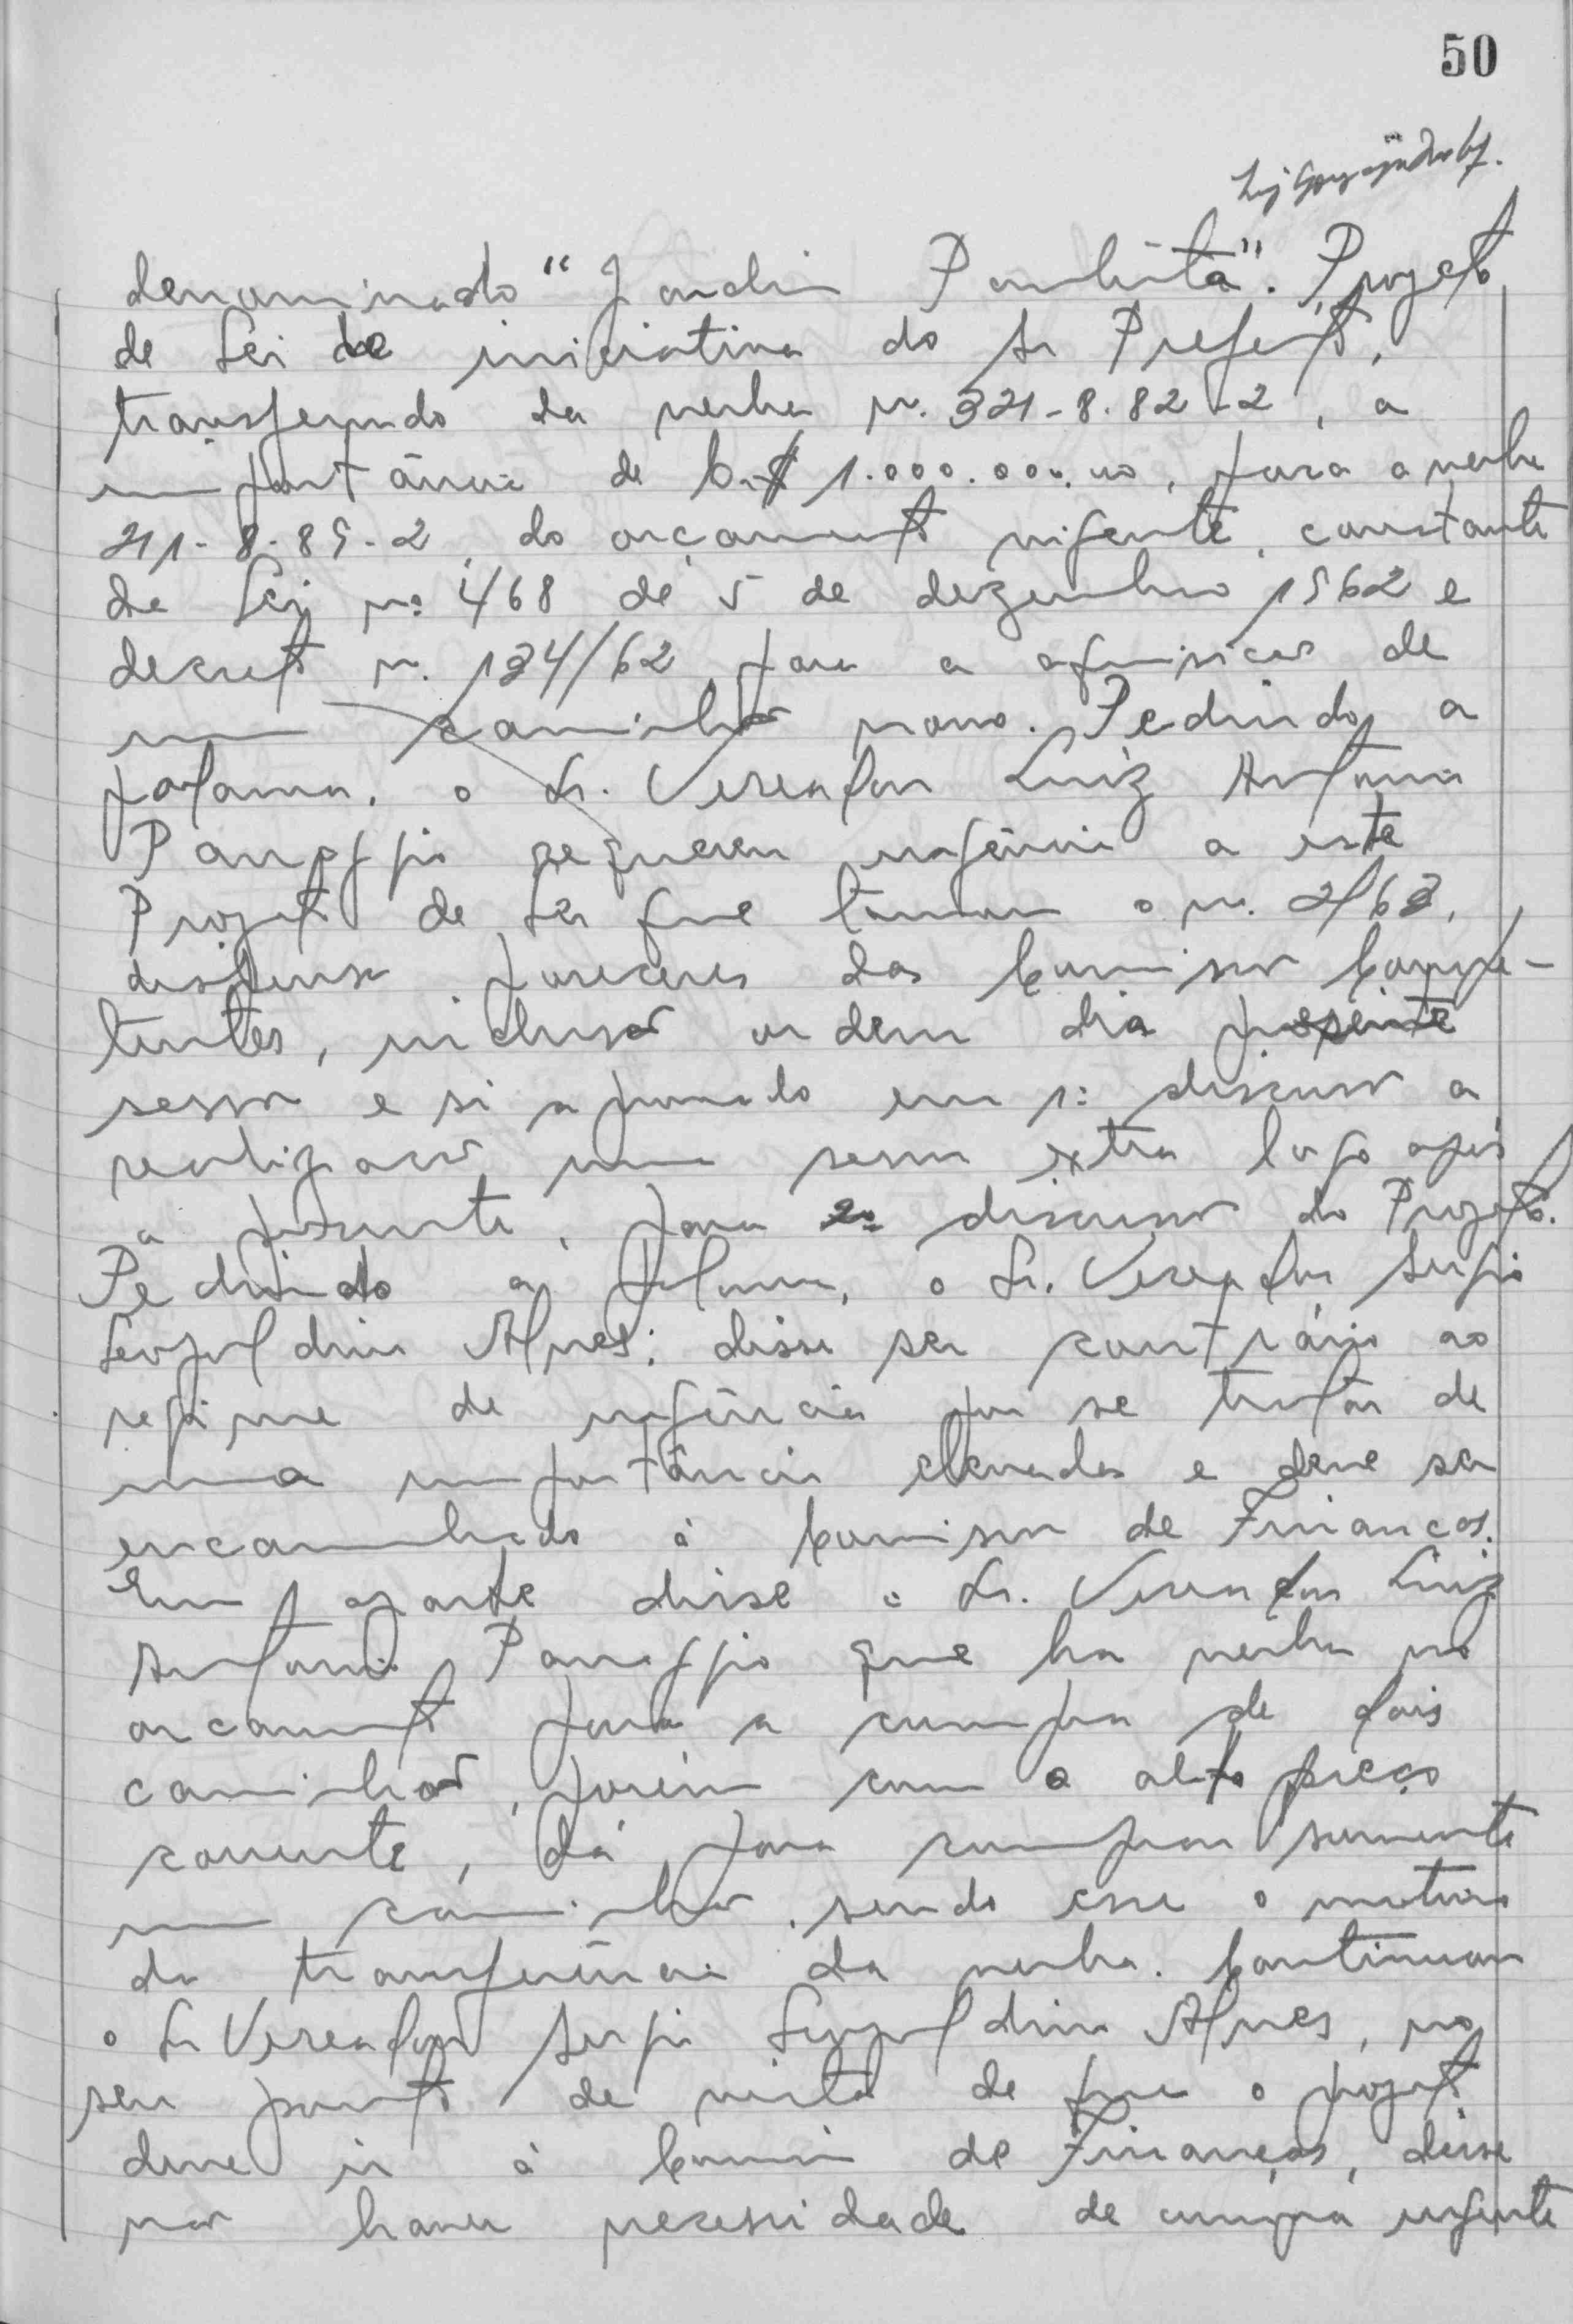 50
denominado "Jardim Paulista". Projeto
de Lei de iniciativa do Sr Prefeito,
transferindo da verba n. 321-8.82-2, a
importância de Cr$ 1.000.000,00, para a verba
211-8-85-2, do orçamento vigente, constante
da Lei nº 468 de 5 de dezembro 1962 e
decreto n. 134/62 para a aquisição de
um caminhão novo. Pedindo a
palavra, o Sr. Vereador Luiz Antonio
Panaggio requereu urgência a este
Projeto de Lei que tomou o n. 2/63,
dispensa pareceres das Comissões Compe-
tentes, inclusão ordem dia presente
sessão e si aprovado em 1ª discussão a
realização uma sessão extra logo após
a presente, para 2ª discussão do Projeto.
Pedindo a palavra, o Sr. Vereador Sergio
Leopoldino Alves, disse ser contrário ao
regime de urgência por se tratar de
uma importância elevada e deve ser
encaminhado à Comissão de Finanças.
Em aparte disse o Sr. Vereador Luiz
Antonio Panaggio que ha verba no
orçamento para a compra de dois
caminhões, porém com o alto preço
corrente, dá para comprar somente
um caminhão, sendo esse o motivo
da transferência da verba. Continuou
o Sr Vereador Sergio Leopoldino Alves, no
seu ponto de vista de que o projeto
deve ir à Comissão de Finanças, disse
não haver necessidade de compra urgente